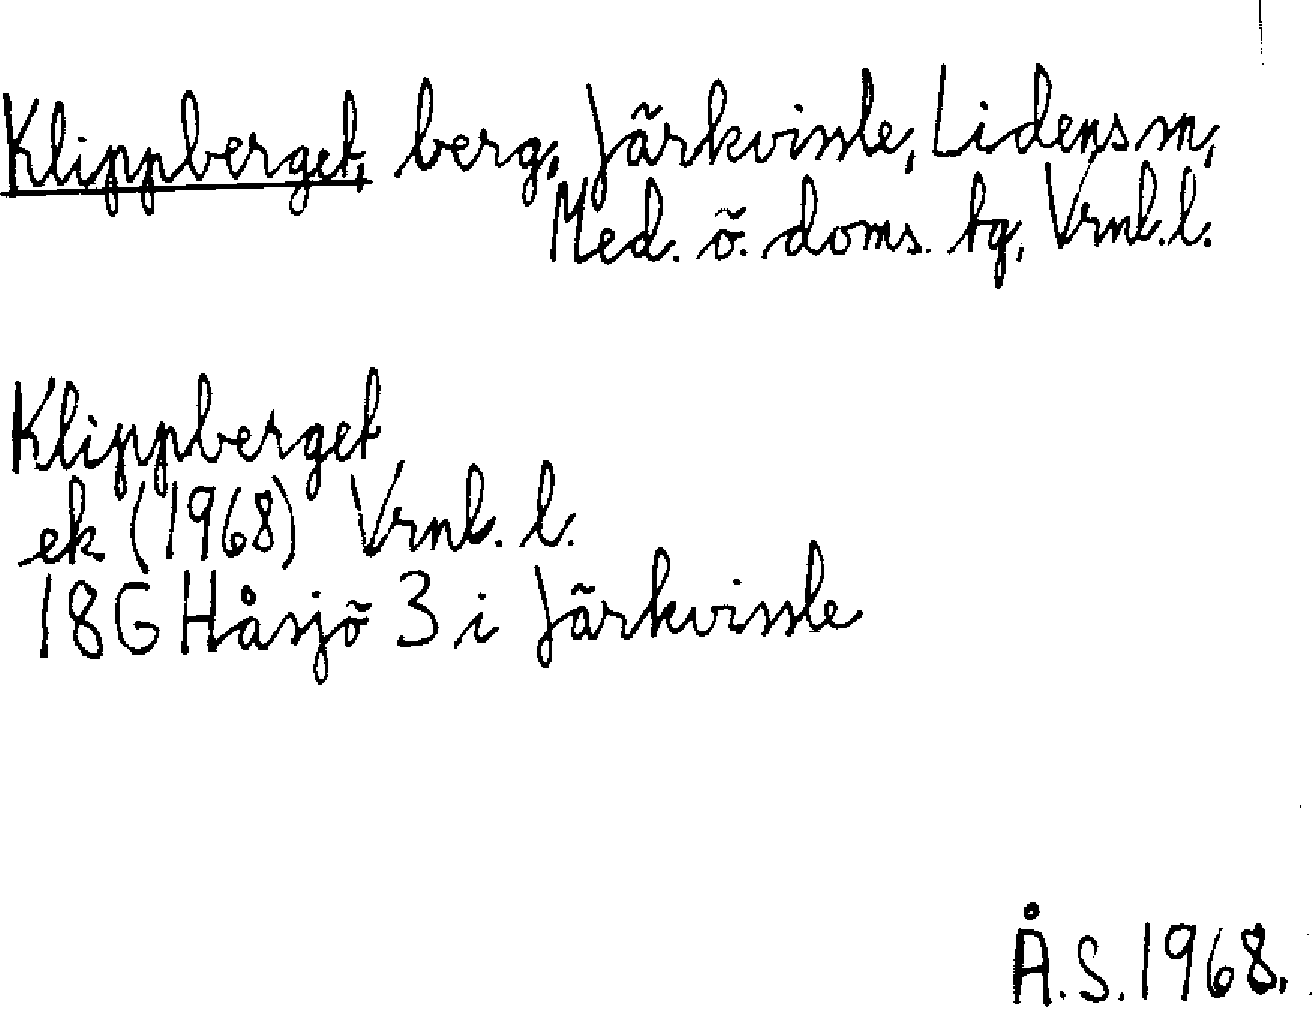 Klippberget, berg, Järkvissle, Lidens sn,
Med. ö. doms. tg, Vrnl. l.
Klippberget
ek (1968) Vrnl. l.
18G Håsjö 3 i Järkvissle
Å.S. 1968.